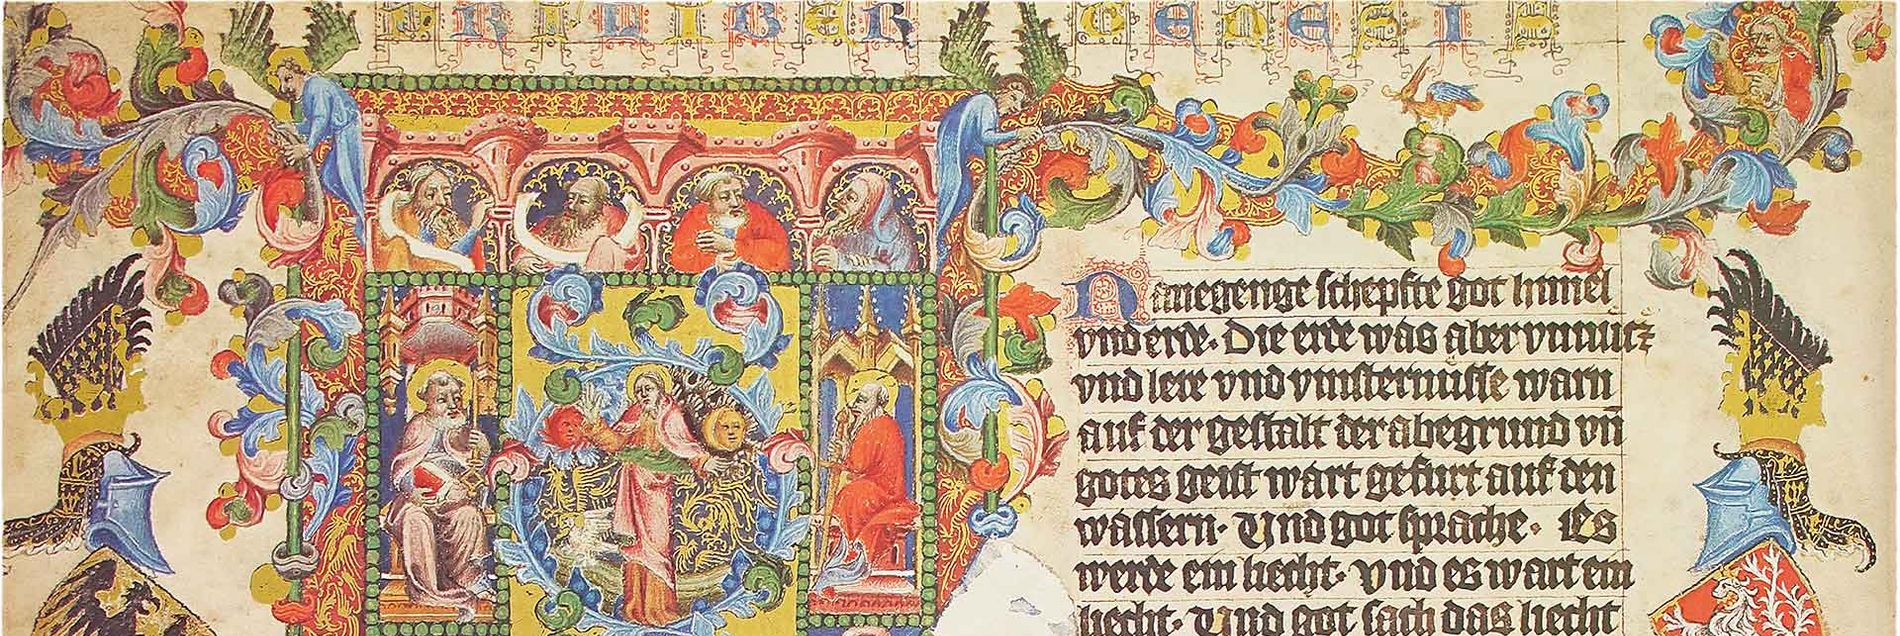 R LIBER GENESIS
Nanegenge schepfte got himel
vnd erde· Die erde was aber vnnucz
vnd lere vnd vinsternusse warn
auf der gestalt der abegrund vn̄
gotes geist wart gefurt auf den
wassern· Vnd got sprache· Es
werde ein liecht· vnd es wart ein
liecht· Vnd got sach das liecht